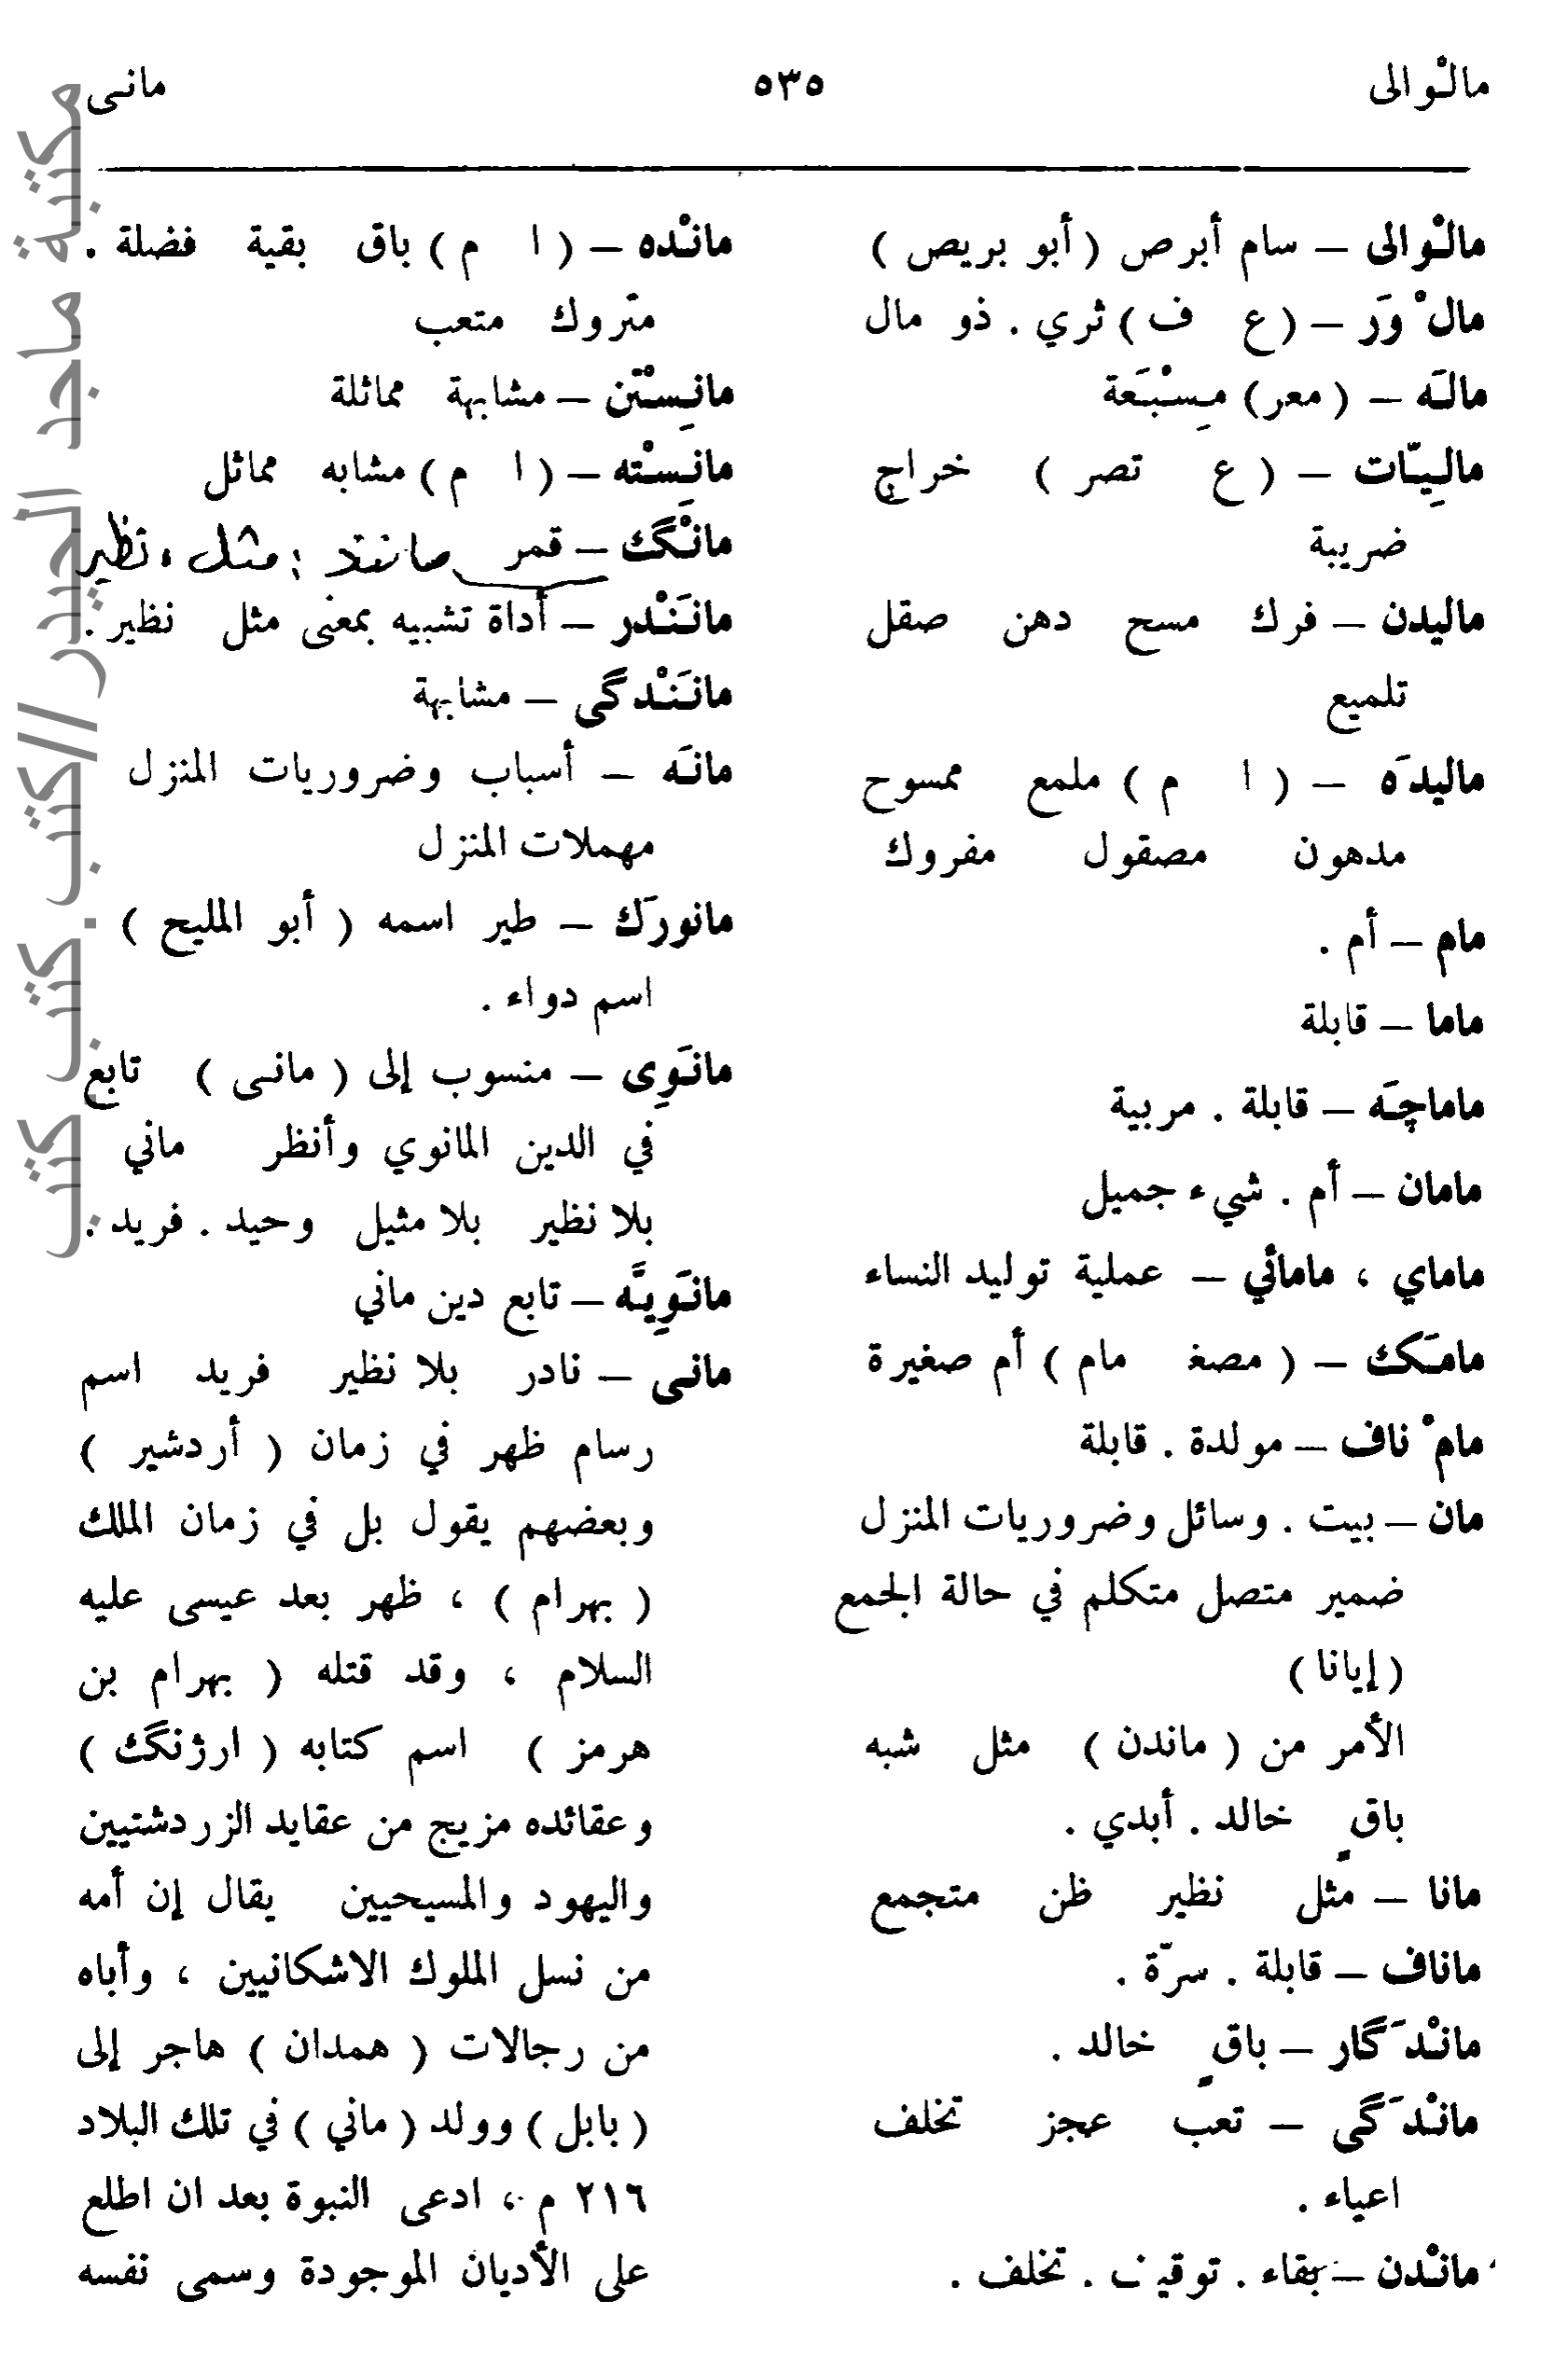 مالْوالى ٥٣٥ مانى
مالْوالى – سام أبرص ( أبو بريص )
مالْ وَر – ( ع ف ) ثري . ذو مال
مالَه – ( معر ) مِسْبَعة
مالِيّات – ( ع تصر ) خراج
ضريبة
ماليدن – فرك مسح دهن صقل
تلميع
ماليدَه – ( ا م ) ملمع ممسوح
مدهون مصقول مفروك
مام – أم .
ماما – قابلة
ماماچَه – قابلة . مربية
مامان – أم . شيء جميل
ماماي ، مامائي – عملية توليد النساء
مامَكك – ( مصغ مام ) أم صغيرة
مامْ ناف – مولدة . قابلة
مان – بيت . وسائل وضروريات المنزل
ضمير متصل متكلم في حالة الجمع
( إيانا )
الأمر من ( ماندن ) مثل شبه
باقٍ خالد . أبدي .
مانا – مثل نظير ظن متجمع
ماناف – قابلة . سرّة .
مانْدَگار – باقٍ خالد .
مانْدَگى – تعب عجز تخلف
اعياء .
مانْدن – بقاء . توقيف . تخلف .
مانْده – ( ا م ) باق بقية فضلة .
متروك متعب
مانِسْتن – مشابهة مماثلة
مانِسْته – ( ا م ) مشابه مماثل
مانْگك – قمر مانند : مثل ، نظير
مانَنْدر – أداة تشبيه بمعنى مثل نظير .
مانَنْدگى – مشابهة
مانَه – أسباب وضروريات المنزل
مهملات المنزل
مانورَك – طير اسمه ( أبو المليح )
اسم دواء .
مانَوِى – منسوب إلى ( مانى ) تابع
في الدين المانوي وأنظر ماني
بلا نظير بلا مثيل وحيد . فريد .
مانَوِيَّه – تابع دين ماني
مانى – نادر بلا نظير فريد اسم
رسام ظهر في زمان ( أردشير )
وبعضهم يقول بل في زمان الملك
( بهرام ) ، ظهر بعد عيسى عليه
السلام ، وقد قتله ( بهرام بن
هرمز ) اسم كتابه ( ارژنگك )
وعقائده مزيج من عقايد الزردشتيين
واليهود والمسيحيين يقال إن أمه
من نسل الملوك الاشكانيين ، وأباه
من رجالات ( همدان ) هاجر إلى
( بابل ) وولد ( ماني ) في تلك البلاد
٢١٦ م ، ادعى النبوة بعد ان اطلع
على الأديان الموجودة وسمى نفسه
مكتبة ماجد الحيدر//كتب.كتب.كتب